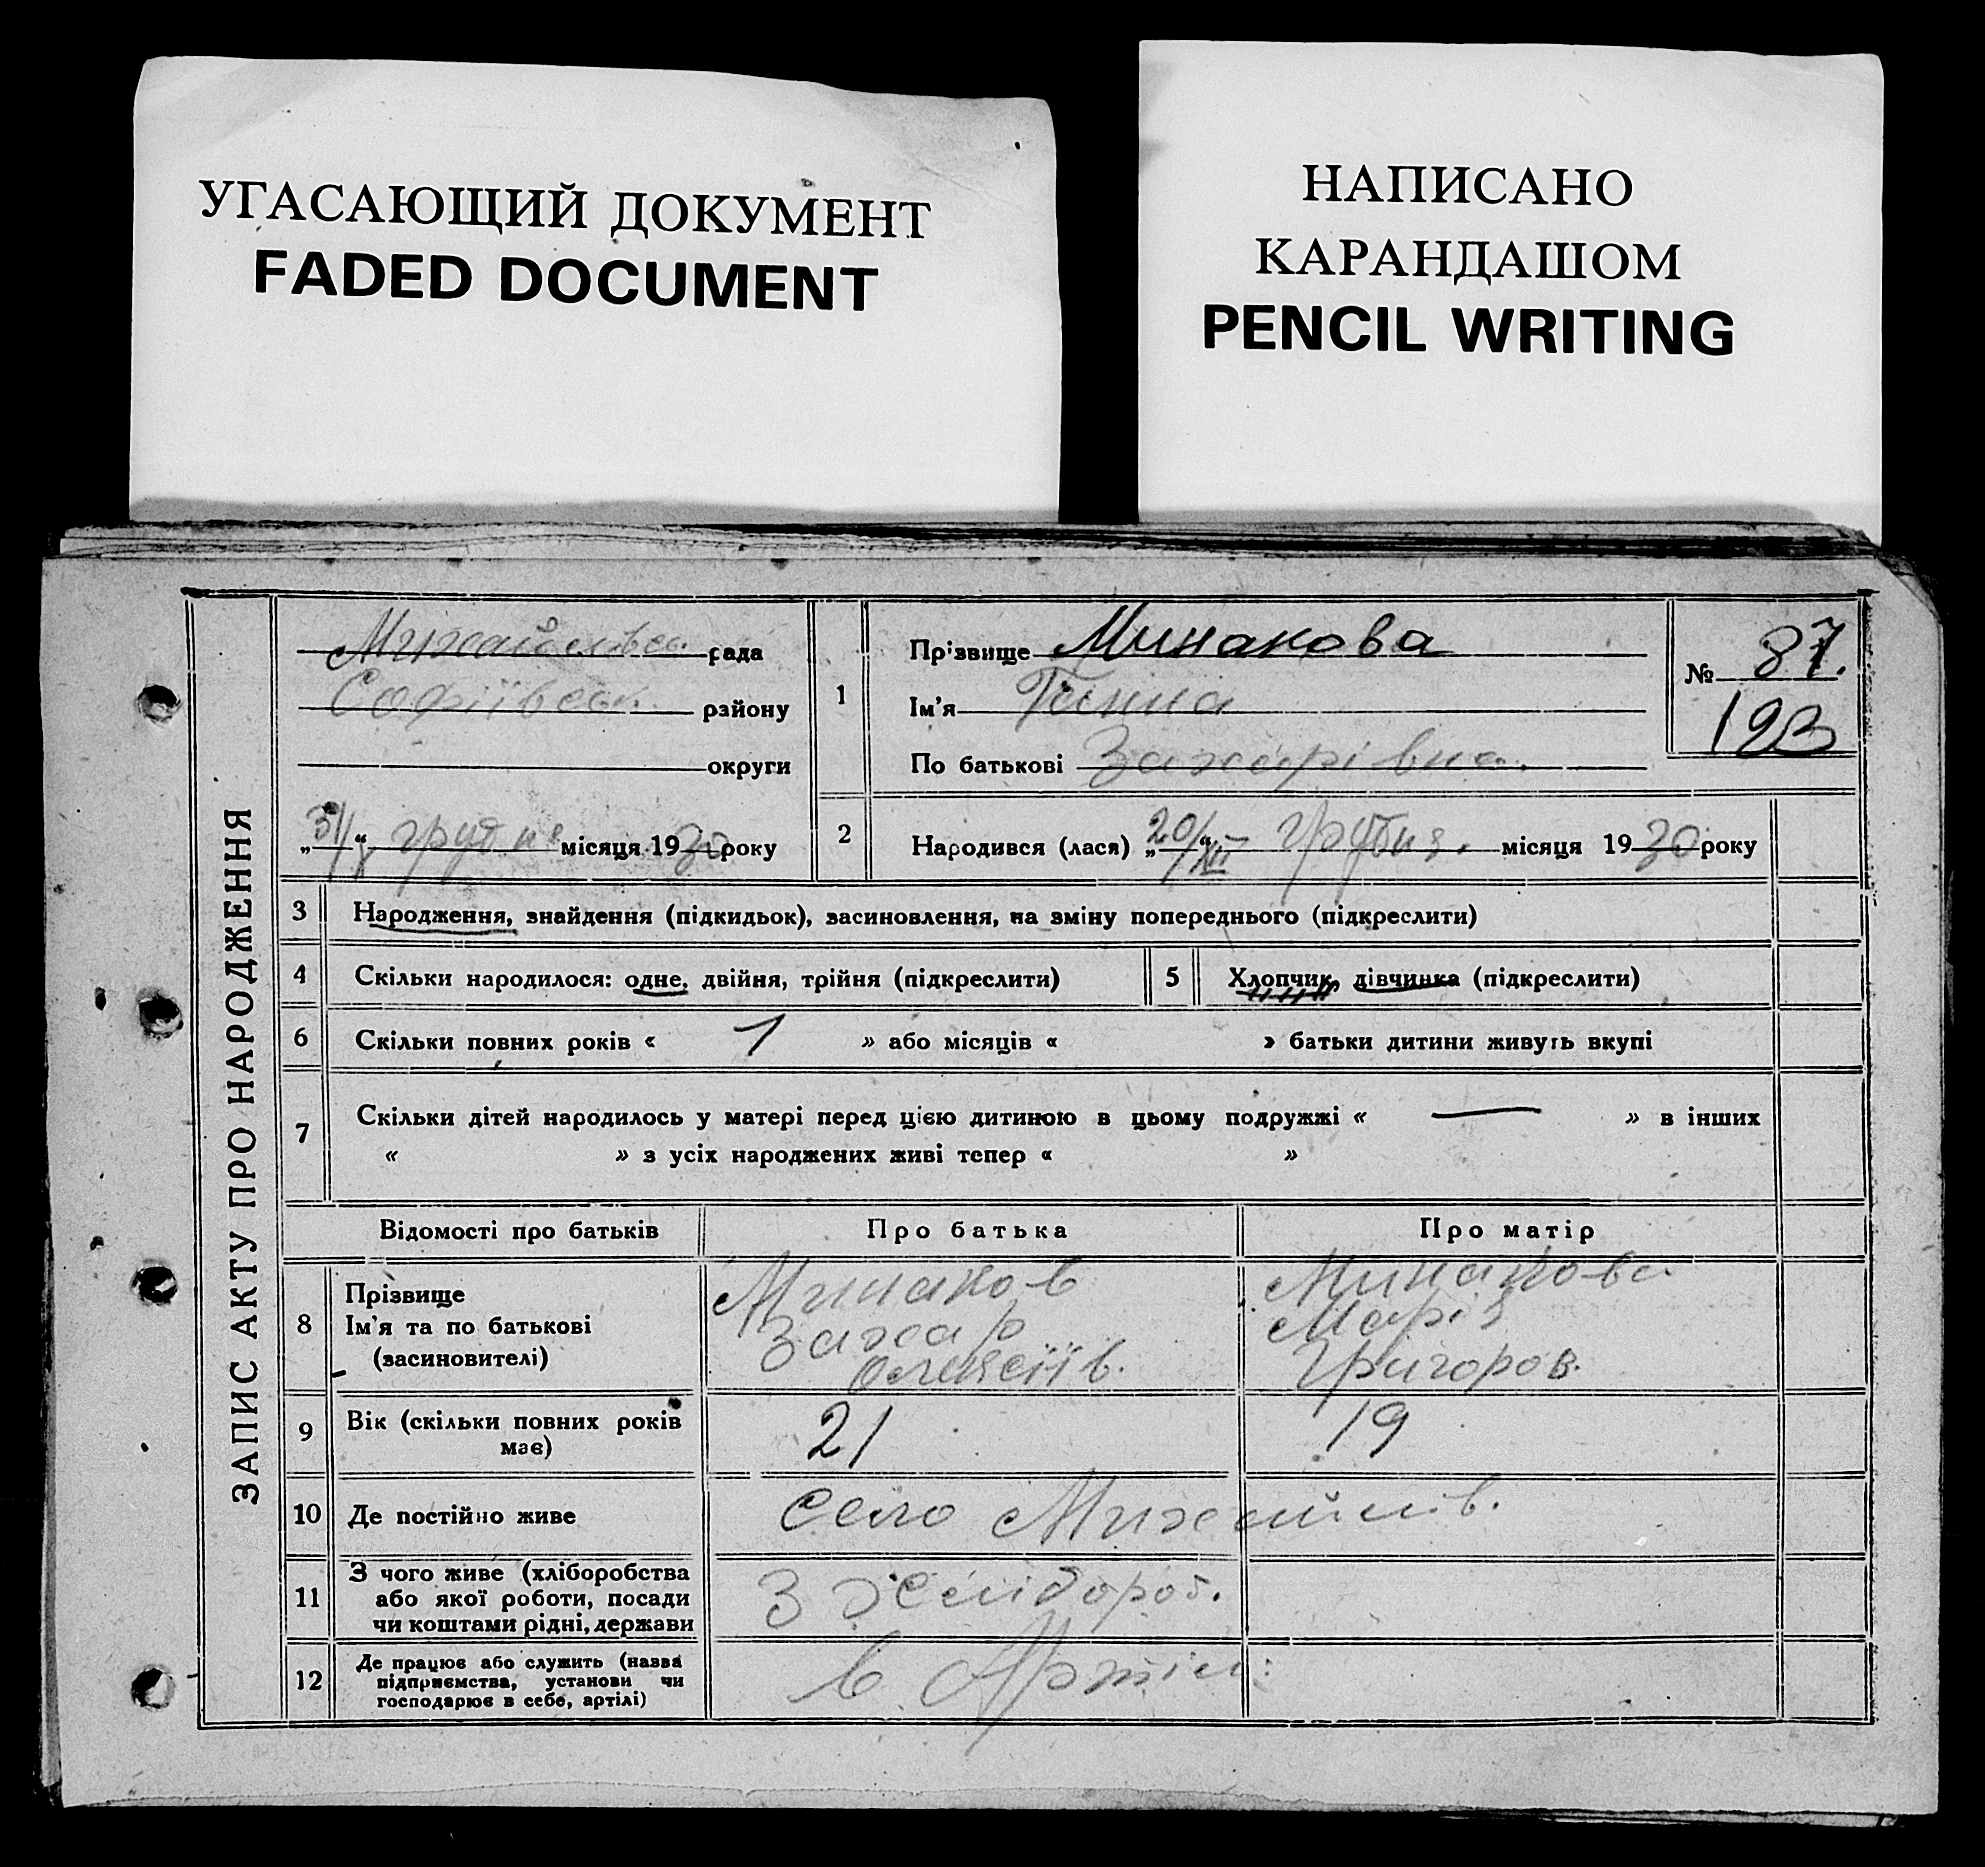 УГАСАЮЩИЙ ДОКУМЕНТ
FADED DOCUMENT
НАПИСАНО
КАРАНДАШОМ
PENCIL WRITING
ЗАПИС АКТУ ПРО НАРОДЖЕННЯ
Михайлівськ. рада
Софіївськ. району
округи
„31/ “ грудня місяця 1930 року
1
Прізвище Минакова
Ім’я Ганна
По батькові Захарівна.
№ 87.
193
2 Народився (лася) „20/XII“ грудня. місяця 1930 року
3 Народження, знайдення (підкидьок), засиновлення, на зміну попереднього (підкреслити)
4 Скільки народилося: одне, двійня, трійня (підкреслити) 5 Хлопчик, дівчинка (підкреслити)
6 Скільки повних років « 1 » або місяців « » батьки дитини живуть вкупі
7 Скільки дітей народилось у матері перед цією дитиною в цьому подружжі « — » в інших
« » з усіх народжених живі тепер « »
Відомості про батьків Про батька Про матір
8 Прізвище Минаков Минакова
Ім’я та по батькові Захар Марія
(засиновителі) Олексіїв. Григоров.
9 Вік (скільки повних років 21 19
має)
10 Де постійно живе село Михайлів.
11 З чого живе (хліборобства З хлібороб.
або якої роботи, посади
чи коштами рідні, держави
12 Де працює або служить (назва в Артіл:
підприємства, установи чи
господарює в себе, артілі)